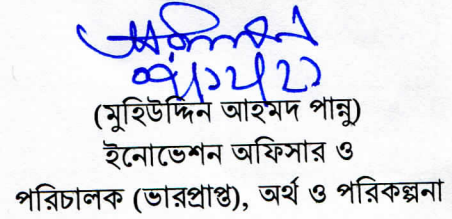 ০৭/১২/২১
(মুহিউদ্দিন আহমদ পান্নু)
ইনোভেশন অফিসার ও
পরিচালক (ভারপ্রাপ্ত), অর্থ ও পরিকল্পনা